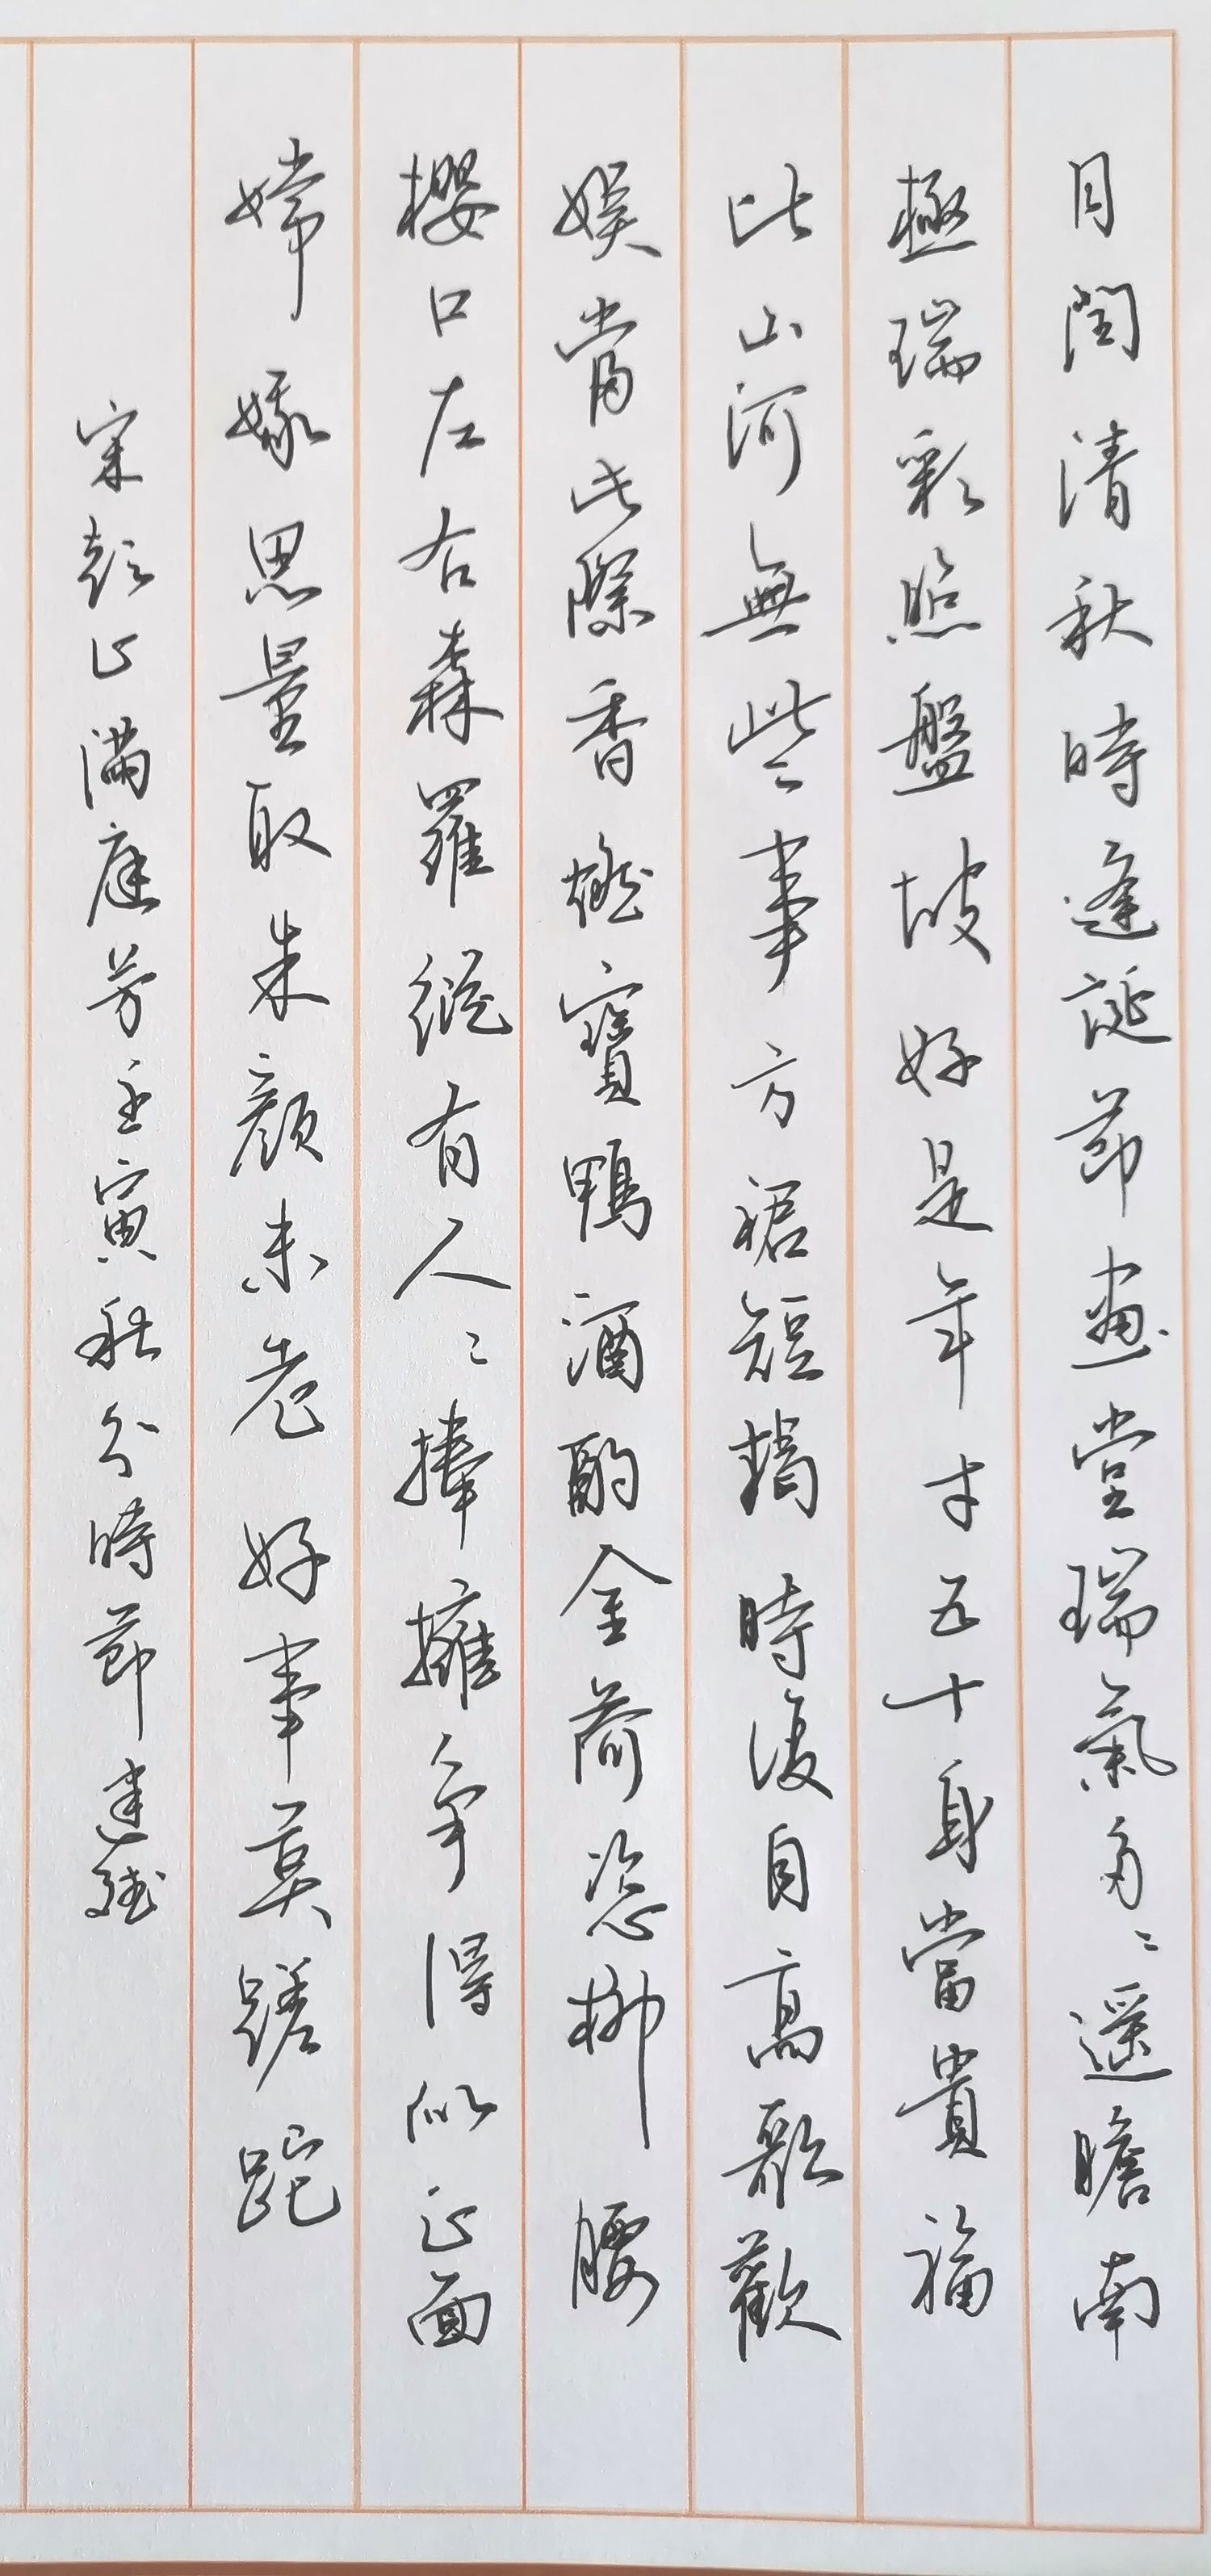 月閏清秋時逢誕節畫堂瑞氣多〻遥瞻南
極瑞彩照盤坡好是年才五十身當貴福
比山河無些事方裙短搊時復自高歌歡
娱當此際香燃寶鴨酒酌金荷恣柳腰
櫻口左右森羅縱有人〻捧擁争得似正面
嫦娥思量取朱顔未老好事莫蹉跎
宋彭正满庭芳壬寅秋分時節建斌